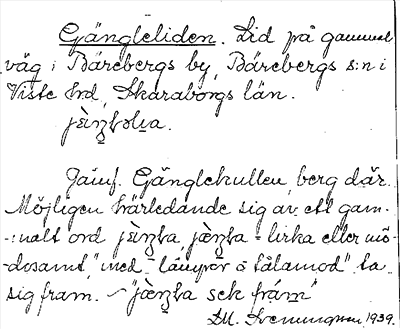 Gängleliden. Lid på gammal
väg i Bärebergs by, Bärebergs s:n i
Viste hrd, Skaraborgs län.
Jämf. Gänglekullen, berg där.
Möjligen härledande sig av ett gam-
-:malt ord = lirka eller mö-
-dosamt, "med lämpor o tålamod" ta
sig fram. - " sek fråm"
1939.